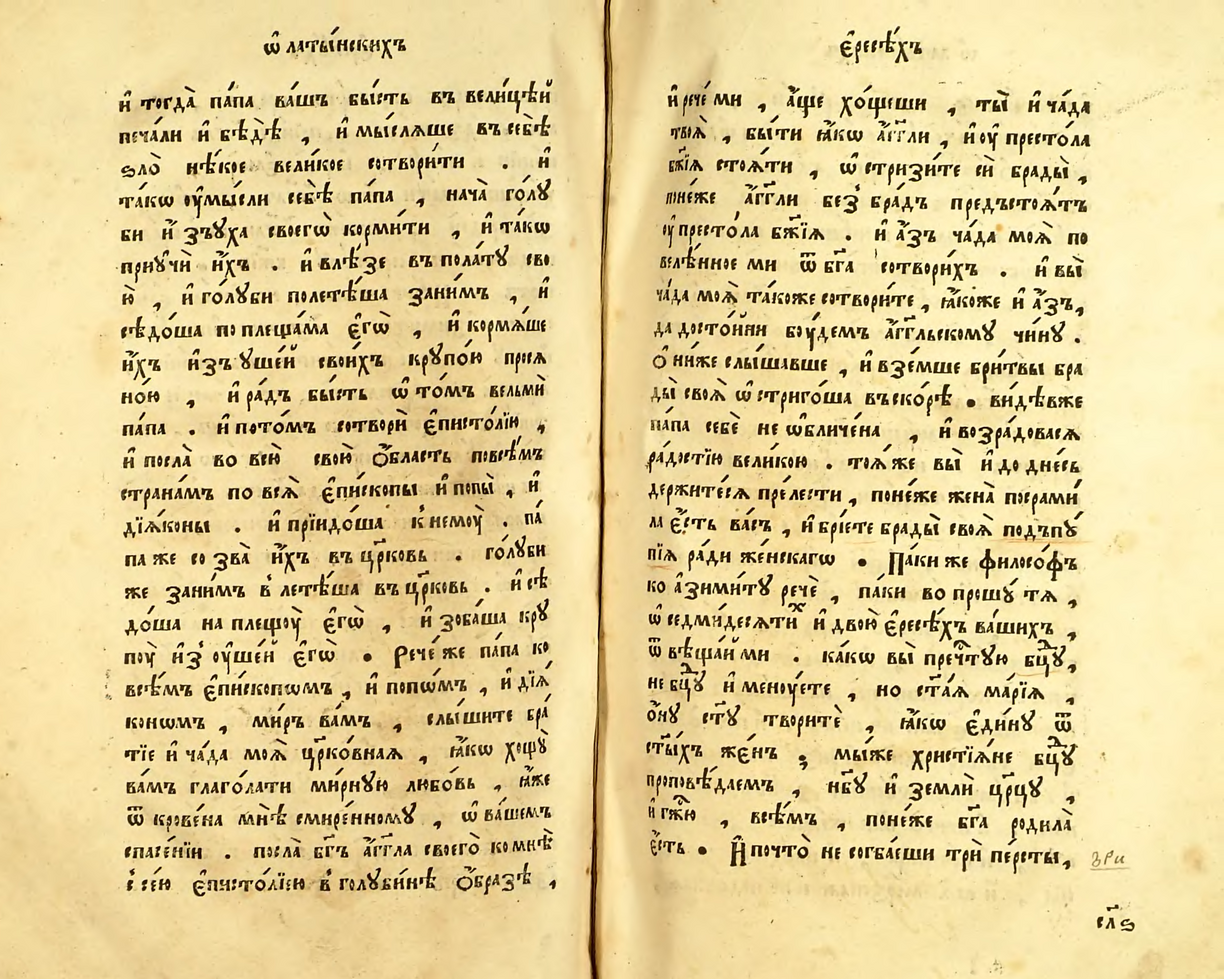 ѿ латы́нскихъ
и҆ тогда̀ па́па ва́шъ бы́сть въ вели́цѣй
печа́ли и҆ бѣ́дѣ , и҆ мы́сляше въ себѣ̀
ѕло̀ нѣ́кое вели́кое сотвори́ти . и҆
та́кѡ ᲂу҆мы́сли себѣ̀ па́па , нача̀ го́лꙋ
би и҆з̾ъꙋ́ха своегѡ̀ корми́ти , и҆ та́кѡ
приꙋчѝ и҆́хъ . и҆ влѣ́зе въ пола́тꙋ сво
ю̀ , и҆ го́лꙋби полетѣ́ша за ни́мъ , и҆
сѣдо́ша по плеща́ма є҆гѡ̀ , и҆ кормя́ше
и҆́хъ и҆зъ ꙋ҆ше́й свои́хъ крꙋпо́ю прося
но́ю , и҆ ра́дъ бы́сть ѡ҆ то́мъ вельмѝ
па́па . и҆ пото́мъ сотворѝ є҆писто́лїю ,
и҆ посла̀ во всю̀ свою̀ ѻ҆́бласть по всѣ́мъ
страна́мъ по всѧ̀ є҆пи́скопы и҆ попы̀ , и҆
дїѧ́коны . и҆ прїидо́ша к̾ немꙋ̀ . па́
па же созва̀ и҆́хъ въ цр҃ковь . го́лꙋби
же за ни́мъ в̾летѣ́ша въ цр҃ковь . и҆ сѣ
до́ша на плещꙋ̀ є҆гѡ̀ , и҆ зоба́ша крꙋ
пꙋ̀ и҆з̾ ᲂу҆ше́й є҆гѡ̀ . Рече́ же па́па ко
всѣ́мъ є҆пи́скопѡмъ , и҆ попѡ́мъ , и҆ дїѧ́
конѡмъ , ми́ръ ва́мъ , слы́шите бра́
тїе и҆ ча́да моѧ̀ цр҃ко́внаѧ , ꙗ҆́кѡ хощꙋ̀
ва́мъ глаго́лати ми́рнꙋю любо́вь , ꙗ҆́же
ѿкрове́на мнѣ̀ смире́нномꙋ , ѡ҆ ва́шемъ
спасе́нїи . посла̀ бг҃ъ а҆́гг҃ла своего̀ ко мнѣ̀
с̾ се́ю є҆писто́лїею в̾ голꙋби́нѣ ѻ҆́бразѣ ,
є҆́ресѣхъ
и҆ рече́ ми , а҆́ще хо́щеши , ты̀ и҆ ча́да
твоѧ̀ , бы́ти ꙗ҆́кѡ а҆́гг҃ли , и҆ ᲂу҆ престо́ла
бж҃їѧ стоѧ́ти , ѡ҆стризи́те сѝ брады̀ ,
поне́же а҆́гг҃ли без̾ бра́дъ предъстоѧ́тъ
ᲂу҆ престо́ла бж҃їѧ . и҆ а҆́зъ ча́да моѧ̀ по
велѣ́нное ми ѿ бг҃а сотвори́хъ . и҆ вы̀
ча́да моѧ̀ та́коже сотвори́те , ꙗ҆́коже и҆ а҆́зъ,
да досто́йни бꙋ́демъ а҆́гг҃льскомꙋ чи́нꙋ .
Ѻ҆ни́же слы́шавше , и҆ взе́мше бри́твы бра
ды̀ своѧ̀ ѡ҆стриго́ша въ ско́рѣ . ви́дѣвже
па́па себѐ не ѡ҆бличе́на , и҆ возра́довасѧ
ра́достїю вели́кою . тоѧ́же вы̀ и҆ до дне́сь
держите́сѧ пре́лести , поне́же жена̀ посрами́
ла є҆́сть ва́съ , и҆ брі́ете брады̀ своѧ̀ подъпꙋ́
пїѧ ра́ди же́нскагѡ . Па́ки же фїлосо́фъ
ко а҆зими́тꙋ речѐ , па́ки вопрошꙋ̀ тѧ ,
ѡ҆ седмидесѧти́х и҆ двою̀ є҆́ресѣхъ ва́шихъ ,
ѿвѣща́й ми . ка́кѡ вы̀ преч҇тꙋю бцⷣꙋ,
не бцⷣꙋ и҆менꙋ́ете , но ст҃а́ѧ марі́ѧ ,
ѻ҆́нꙋ ст҃ꙋ творитѐ , ꙗ҆́кѡ є҆ди́нꙋ ѿ
ст҃ы́хъ же́нъ ; мы́же христїѧ́не бцⷣꙋ
проповѣ́даемъ , нб҃ꙋ и҆ землѝ цр҃цꙋ ,
и҆ гж҃ю , всѣ́мъ , поне́же бг҃а родила̀
є҆́сть . И҆ почто̀ не согба́еши трѝ пе́рсты,
зри
сл҃ѕ